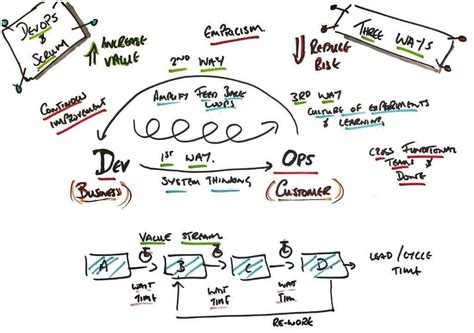 DEVOPS
&
SCRUM
↑ INCREASE
VALUE
EMPRICISM
↓ REDUCE
RISK
THREE WAYS
2ND WAY
AMPLIFY FEED BACK
LOOPS
CONTINOUS
IMPROVEMENT
3RD WAY
CULTURE OF EXPERIMENTS
& LEARNING
DEV
(BUSINESS)
1ST WAY.
SYSTEM THINKING
OPS
(CUSTOMER)
CROSS FUNCTIONAL
TEAMS &
DONE
VALUE STREAM
A
B
C
D.
LEAD/CYCLE
TIME
WAIT
TIME
WAIT
TIME
WAIT
TIM
RE-WORK